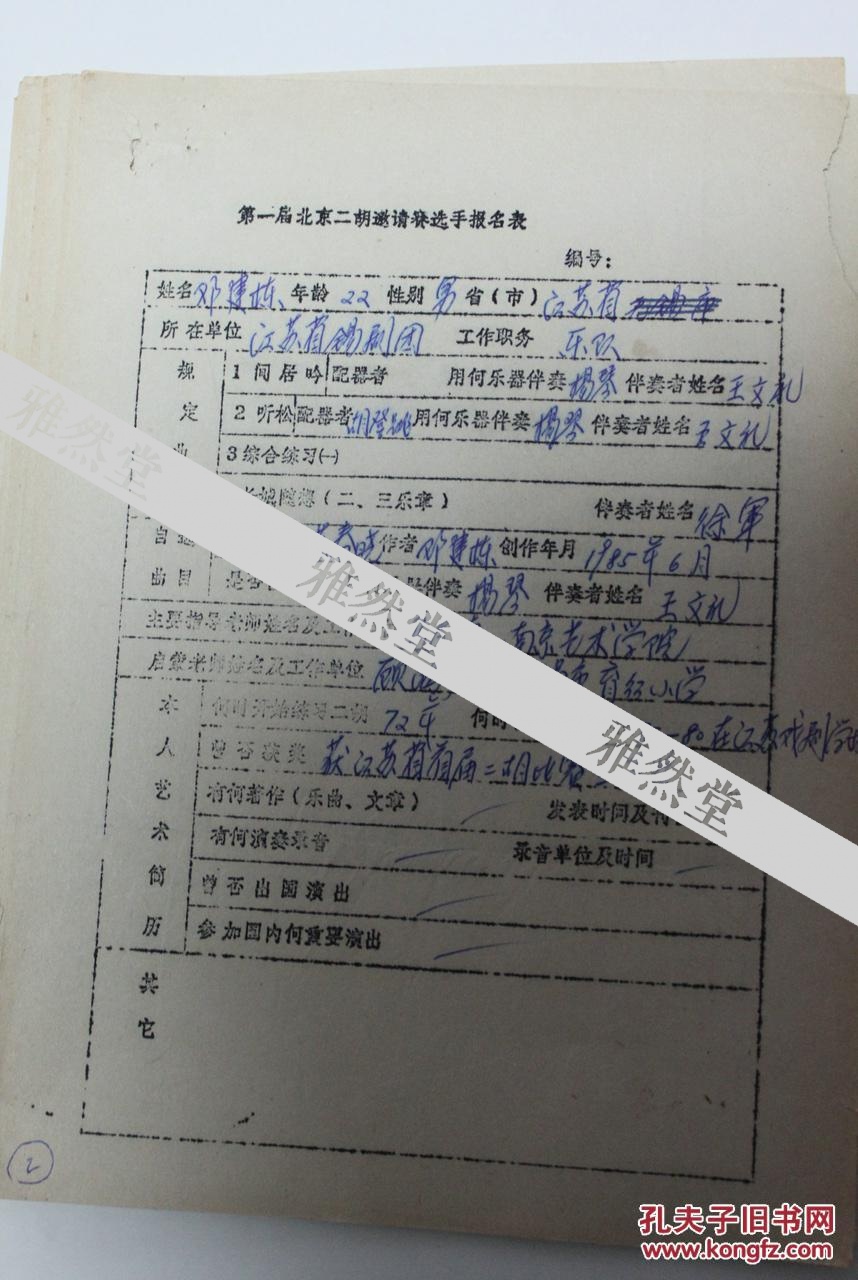 第一届北京二胡邀请赛选手报名表
编号：
姓名 邓建栋 年龄 22 性别 男 省（市） 江苏省
所在单位 江苏省锡剧团 工作职务 乐队
规定曲
1 闲居吟 配器者 用何乐器伴奏 扬琴 伴奏者姓名 王文礼
2 听松 配器者 胡登跳 用何乐器伴奏 扬琴 伴奏者姓名 王文礼
3 综合练习(一)
长城随想（二、三乐章） 伴奏者姓名 徐军
自选曲目
春晓 作者 邓建栋 创作年月 1985年6月
是否 伴奏 扬琴 伴奏者姓名 王文礼
主要指导老师姓名及工作 南京艺术学院
启蒙老师姓名及工作单位 育红小学
本人艺术简历
何时开始练习二胡 72年 何时 80在江苏戏剧学校
曾否获奖 获江苏省首届二胡比赛
有何著作（乐曲、文章） 发表时间及刊
有何演奏录音 录音单位及时间
曾否出国演出
参加国内何重要演出
其它
2
雅然堂
雅然堂
雅然堂
孔夫子旧书网
www.kongfz.com